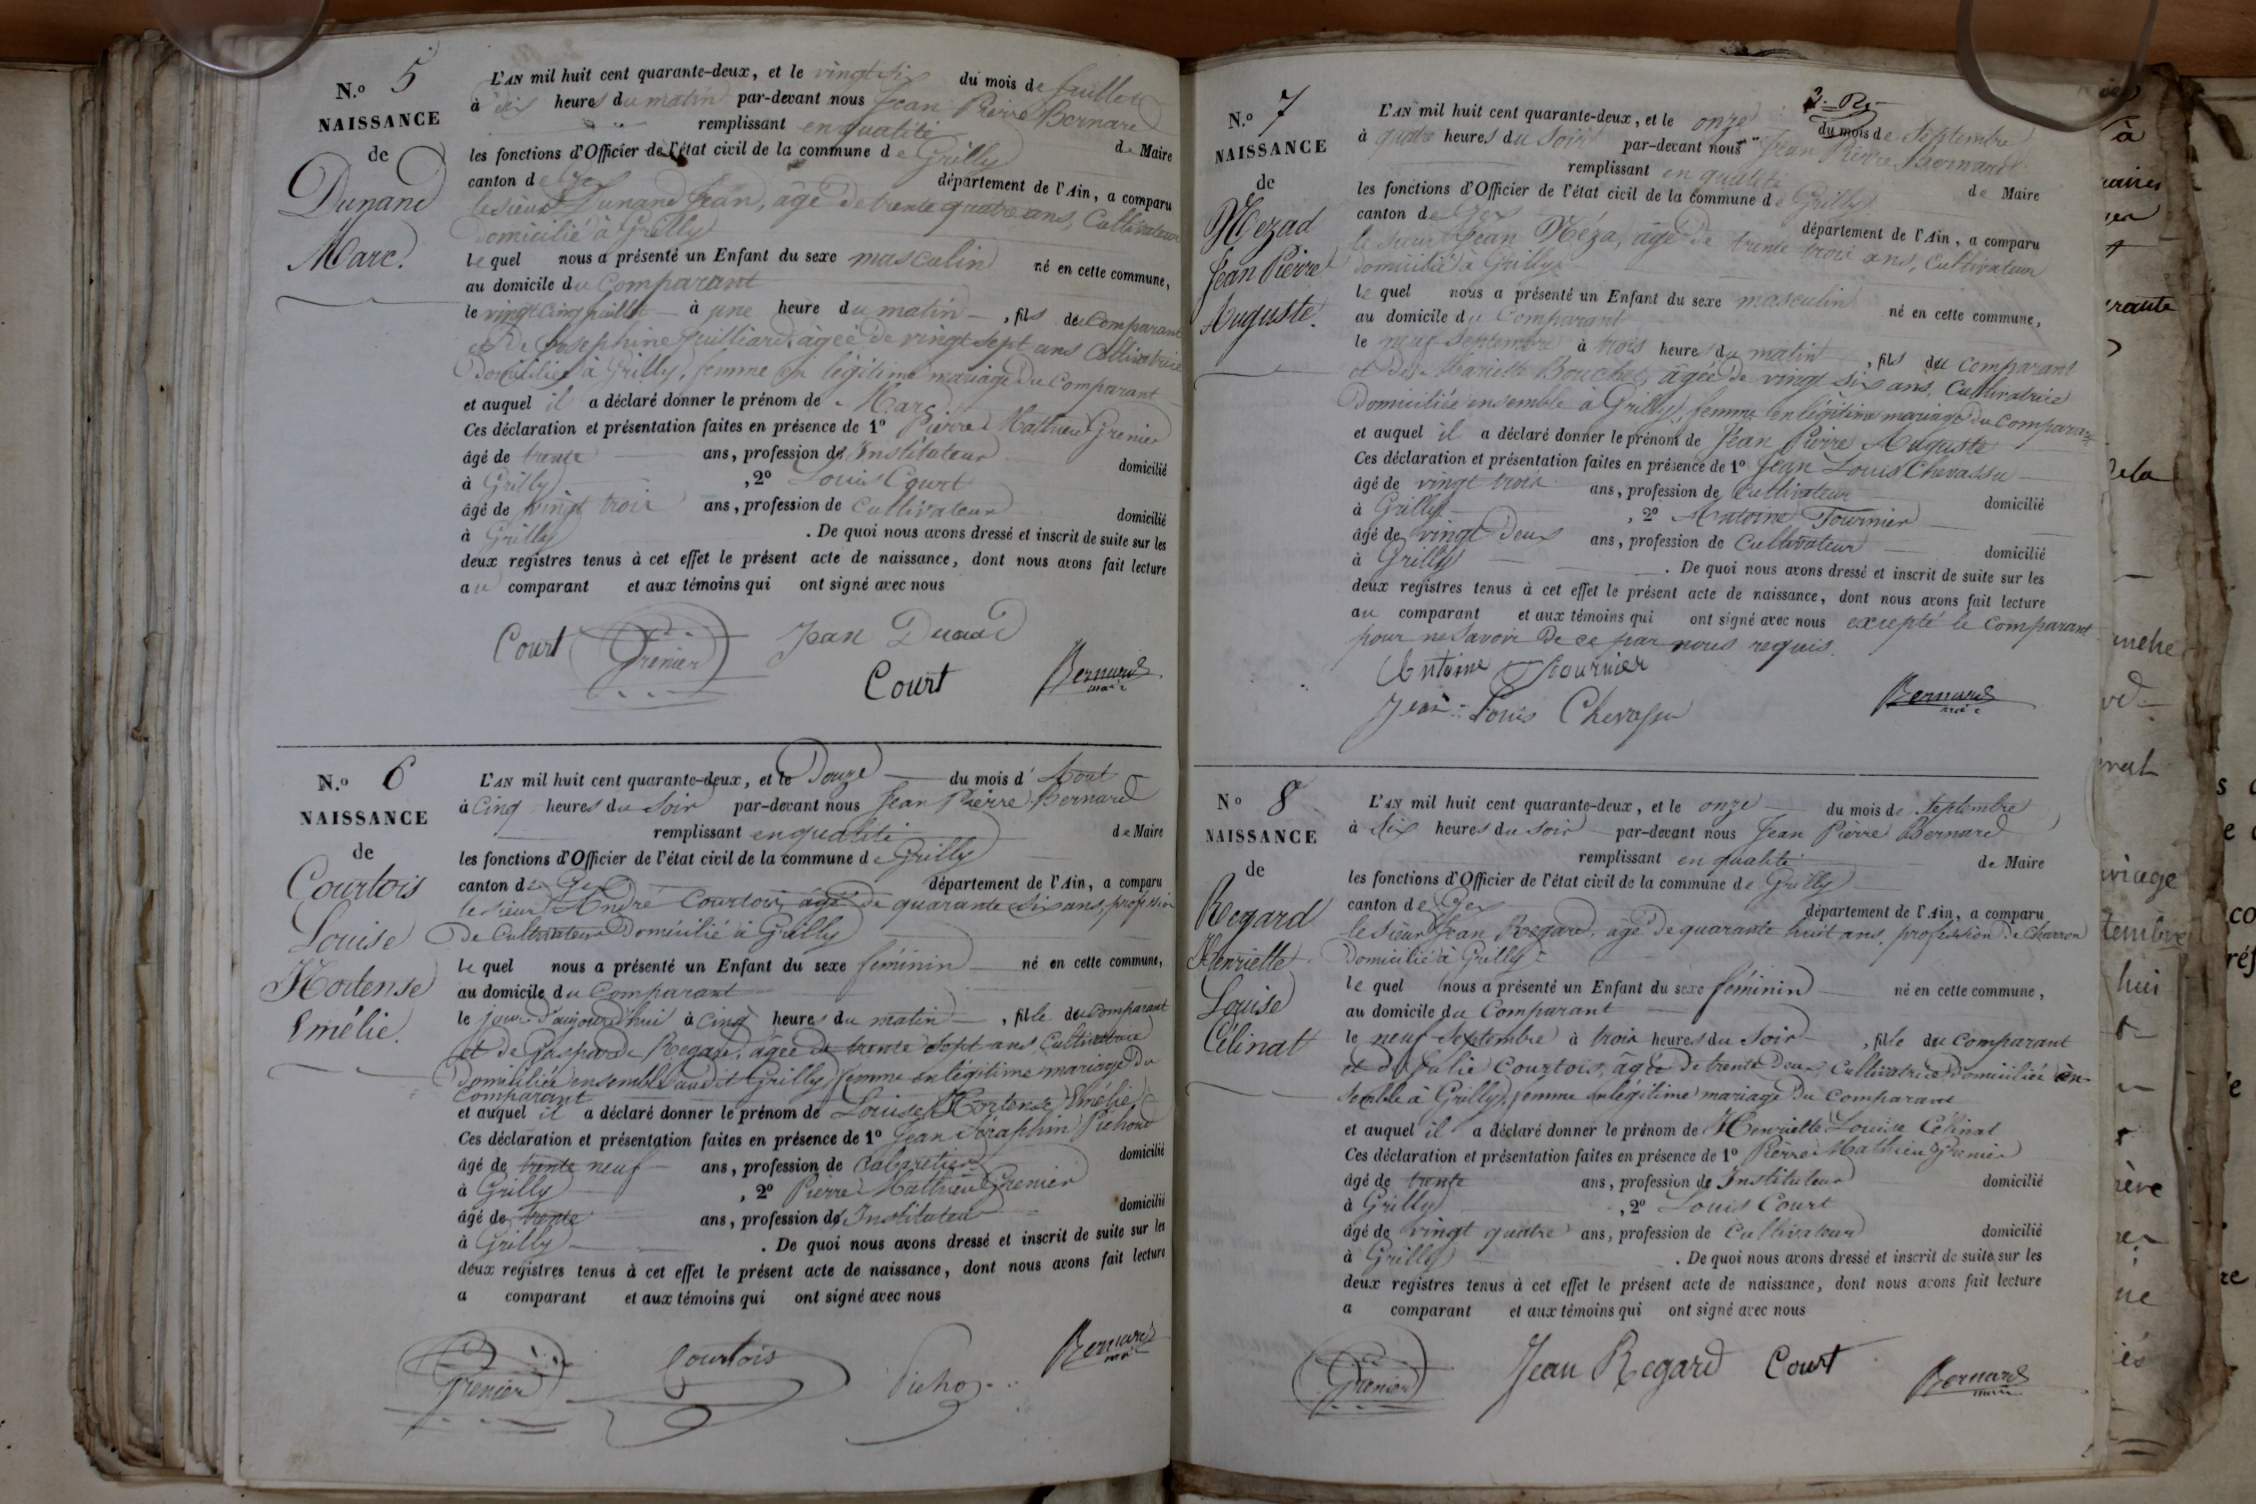 N.º 5
NAISSANCE
de
Dunand
Marc.
L'AN mil huit cent quarante-deux, et le vingt six du mois de Juillet
à dix heures du matin par-devant nous Jean Pierre Bernard
remplissant en qualité de Maire
les fonctions d'Officier de l'état civil de la commune de Grilly
canton de Gex département de l'Ain, a comparu
le sieur Dunand Jean, âgé de trente quatre ans, Cultivateur
domicilié à Grilly
lequel nous a présenté un Enfant du sexe masculin né en cette commune,
au domicile du Comparant
le vingt cinq juillet à une heure du matin, fils du Comparant
et de Josephine Juilliard, âgée de vingt sept ans Cultivatrice
domiciliée à Grilly, femme en légitime mariage du Comparant
et auquel il a déclaré donner le prénom de Marc
Ces déclaration et présentation faites en présence de 1º Pierre Mathieu Grenier
âgé de trente ans, profession d'Instituteur domicilié
à Grilly, 2º Louis Court
âgé de vingt trois ans, profession de Cultivateur domicilié
à Grilly. De quoi nous avons dressé et inscrit de suite sur les
deux registres tenus à cet effet le présent acte de naissance, dont nous avons fait lecture
au comparant et aux témoins qui ont signé avec nous
Court Grenier Jean Dunand
Court Bernard
maire
N.º 6
NAISSANCE
de
Courtois
Louise
Hortense
Emélie.
L'AN mil huit cent quarante-deux, et le Douze du mois d'Aout
à Cinq heures du Soir par-devant nous Jean Pierre Bernard
remplissant en qualité de Maire
les fonctions d'Officier de l'état civil de la commune de Grilly
canton de Gex département de l'Ain, a comparu
le sieur André Courtois, âgé de quarante six ans, profession
de Cultivateur domicilié à Grilly
lequel nous a présenté un Enfant du sexe féminin né en cette commune,
au domicile du Comparant
le jour d'aujourd'hui à Cinq heures du matin, fille du Comparant
et de Gasparde Regard, âgée de trente sept ans, Cultivatrice
domiciliée ensemble audit Grilly, femme en légitime mariage du
Comparant
et auquel il a déclaré donner le prénom de Louise Hortense Emélie
Ces déclaration et présentation faites en présence de 1º Jean Séraphin Pichond
âgé de trente neuf ans, profession de Cabaretier domicilié
à Grilly, 2º Pierre Mathieu Grenier
âgé de trente ans, profession d'Instituteur domicilié
à Grilly. De quoi nous avons dressé et inscrit de suite sur les
deux registres tenus à cet effet le présent acte de naissance, dont nous avons fait lecture
a comparant et aux témoins qui ont signé avec nous
Grenier Courtois Bernard
maire
N.º 7
NAISSANCE
de
Mezad
Jean Pierre
Auguste.
L'AN mil huit cent quarante-deux, et le onze du mois de Septembre
à quatre heures du Soir par-devant nous Jean Pierre Bernard
remplissant en qualité de Maire
les fonctions d'Officier de l'état civil de la commune de Grilly
canton de Gex département de l'Ain, a comparu
le sieur Jean Méza, âgé de trente trois ans, Cultivateur
domicilié à Grilly
lequel nous a présenté un Enfant du sexe masculin né en cette commune,
au domicile du Comparant
le neuf Septembre à trois heures du matin, fils du comparant
et de Mariette Bouchet, âgée de vingt six ans, Cultivatrice
domiciliée ensemble a Grilly, femme en légitime mariage du Comparant
et auquel il a déclaré donner le prénom de Jean Pierre Auguste
Ces déclaration et présentation faites en présence de 1º Jean Louis Chevassu
âgé de vingt trois ans, profession de Cultivateur domicilié
à Grilly, 2º Antoine Tournier
âgé de vingt deux ans, profession de Cultivateur domicilié
à Grilly. De quoi nous avons dressé et inscrit de suite sur les
deux registres tenus à cet effet le présent acte de naissance, dont nous avons fait lecture
au comparant et aux témoins qui ont signé avec nous excepté le Comparant
pour ne savoir de ce par nous requis.
Antoine Tournier
Jean Louis Chevassu Bernard
maire
Nº 8
NAISSANCE
de
Regard
Henriette
Louise
Célinat
L'AN mil huit cent quarante-deux, et le onze du mois de Septembre
à six heures du soir par-devant nous Jean Pierre Bernard
remplissant en qualité de Maire
les fonctions d'Officier de l'état civil de la commune de Grilly
canton de Gex département de l'Ain, a comparu
le sieur Jean Regard, âgé de quarante huit ans, profession de Charron
domicilié à Grilly
lequel nous a présenté un Enfant du sexe féminin né en cette commune,
au domicile du Comparant
le neuf Septembre à trois heures du Soir, fille du Comparant
et de Julie Courtois, âgée de trente deux, Cultivatrice domiciliée en-
semble à Grilly, femme en légitime mariage du Comparant
et auquel il a déclaré donner le prénom de Henriette Louise Célinat
Ces déclaration et présentation faites en présence de 1º Pierre Mathieu Grenier
âgé de trente ans, profession de Instituteur domicilié
à Grilly, 2º Louis Court
âgé de vingt quatre ans, profession de Cultivateur domicilié
à Grilly. De quoi nous avons dressé et inscrit de suite sur les
deux registres tenus à cet effet le présent acte de naissance, dont nous avons fait lecture
a comparant et aux témoins qui ont signé avec nous
Grenier Jean Regard Court Bernard
maire